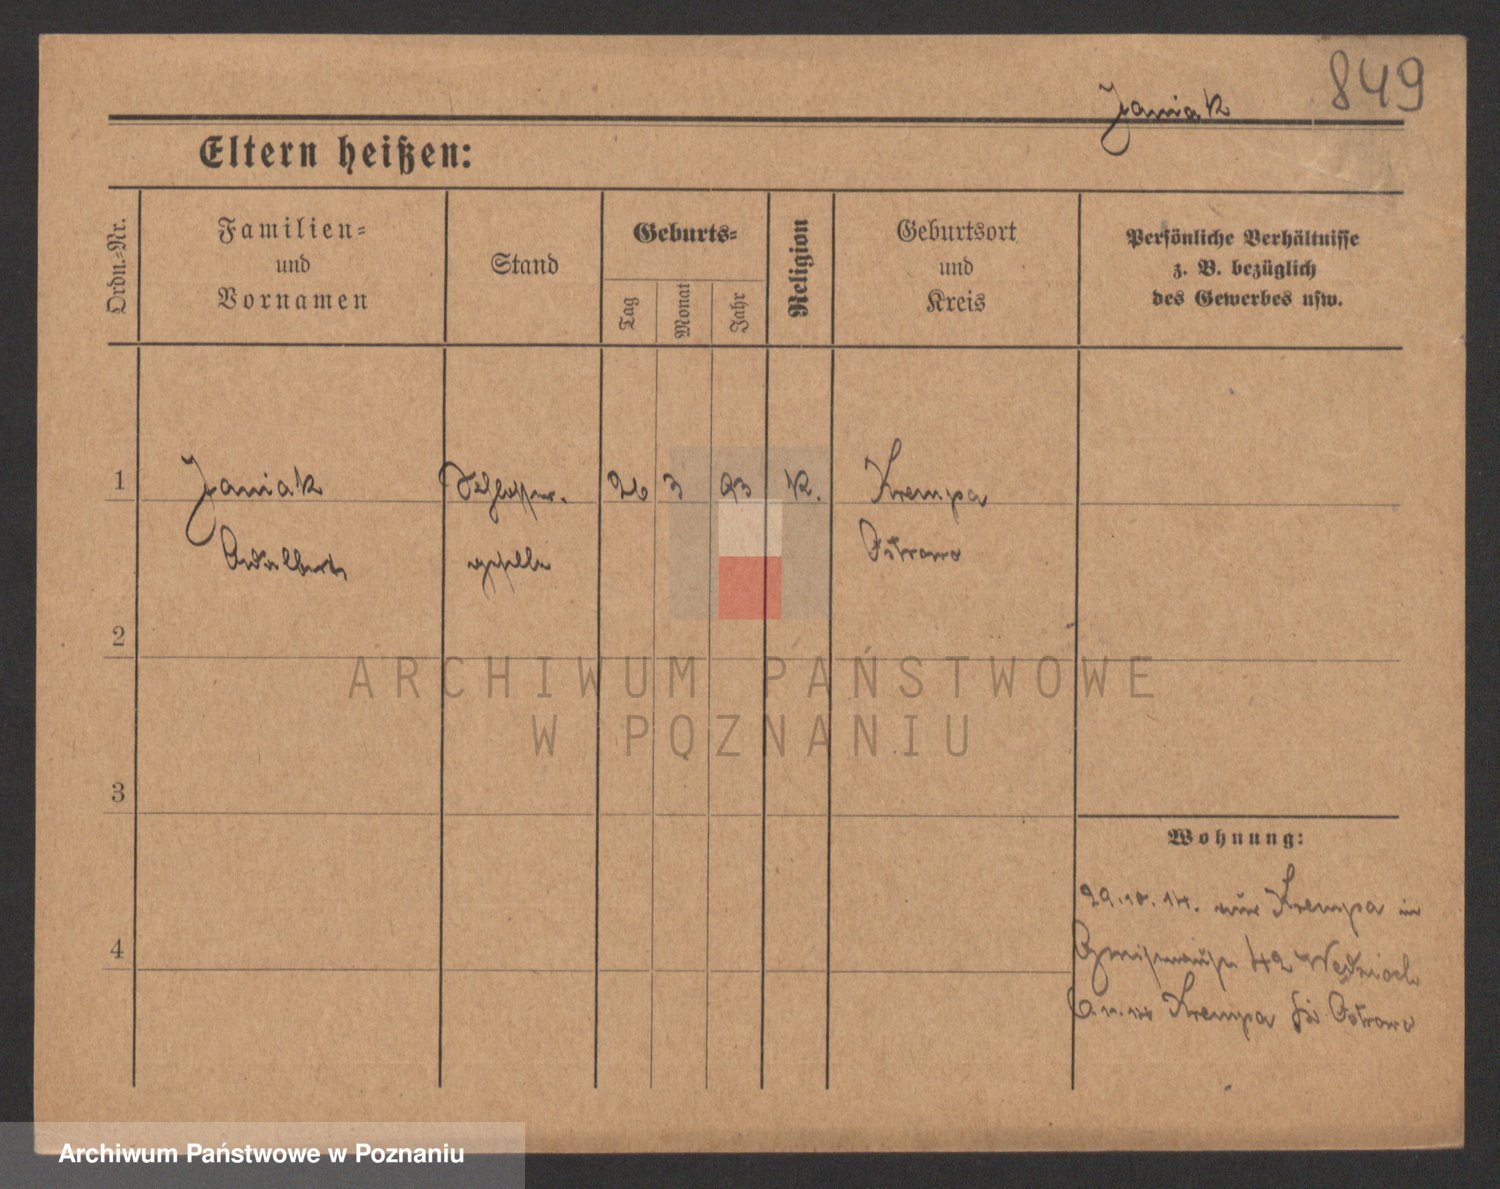 849
Janiak
Eltern heißen:
Ordn.-Nr.
Familien-
und
Vornamen
Stand
Geburts-
Tag
Monat
Jahr
Religion
Geburtsort
und
Kreis
Persönliche Verhältnisse
z. B. bezüglich
des Gewerbes usw.
1
Janiak
Schlosser-
26
3
93
K.
Krempa
Adalbert
geselle
Ostrowo
2
ARCHIWUM PAŃSTWOWE
W POZNANIU
3
Wohnung:
29.10.14. Krempa in
42
4
6.11.14 Krempa Ostrowo
Archiwum Państwowe w Poznaniu